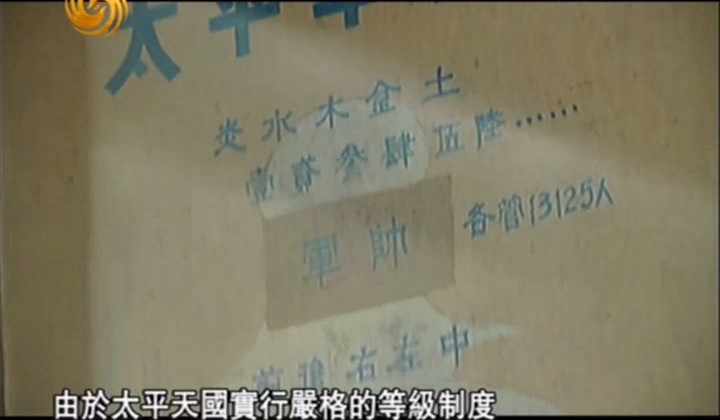 太平軍
炎水木金土
壹貳叁肆伍陸……
軍帥
各管13125人
前後右左中
由於太平天國實行嚴格的等級制度